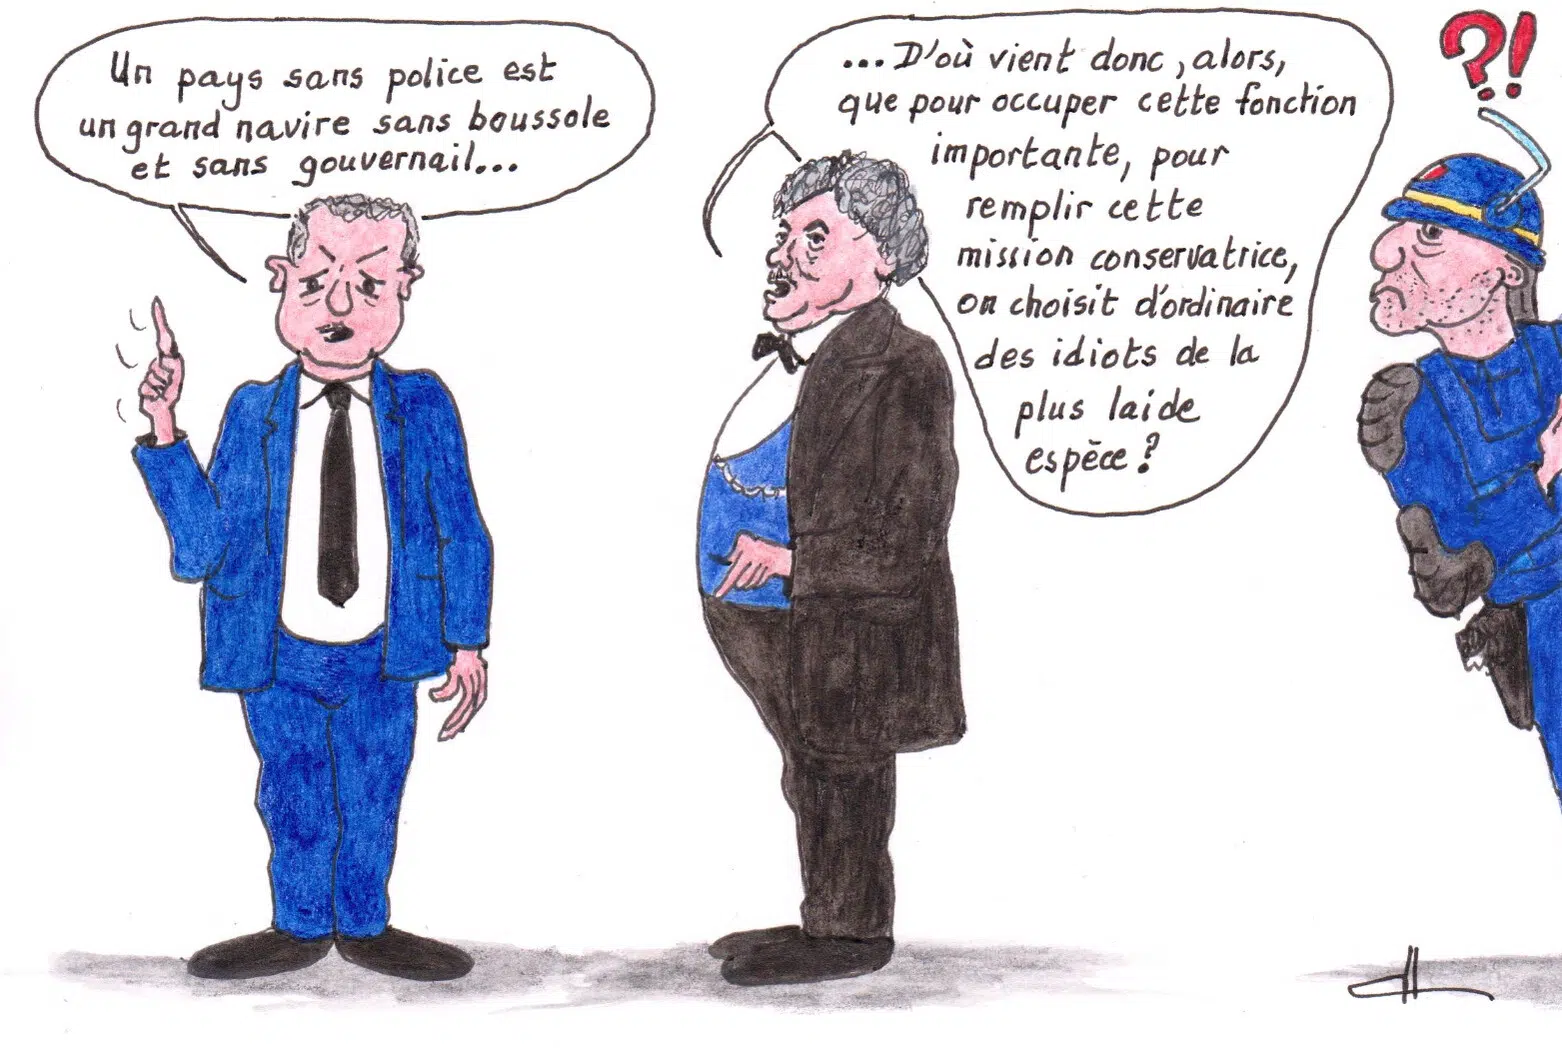 Un pays sans police est
un grand navire sans boussole
et sans gouvernail...
...D'où vient donc, alors,
que pour occuper cette fonction
importante, pour
remplir cette
mission conservatrice,
on choisit d'ordinaire
des idiots de la
plus laide
espèce?
?!